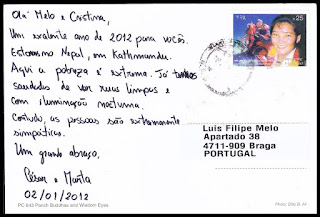 Olá Melo e Cristina,
Um exelente ano de 2012 para vocês.
Estamos no Nepal, em Kathmandu.
Aqui a pobreza é extrema. Já temos
saudades de ver ruas limpas e
com iluminação nocturna.
Contudo, as pessoas são extremamente
simpáticas.
Um grande abraço,
César e Marta
02/01/2012
25
Luis Filipe Melo
Apartado 38
4711-909 Braga
PORTUGAL
PC 643 Patan's Buddhas and Wisdom Eyes